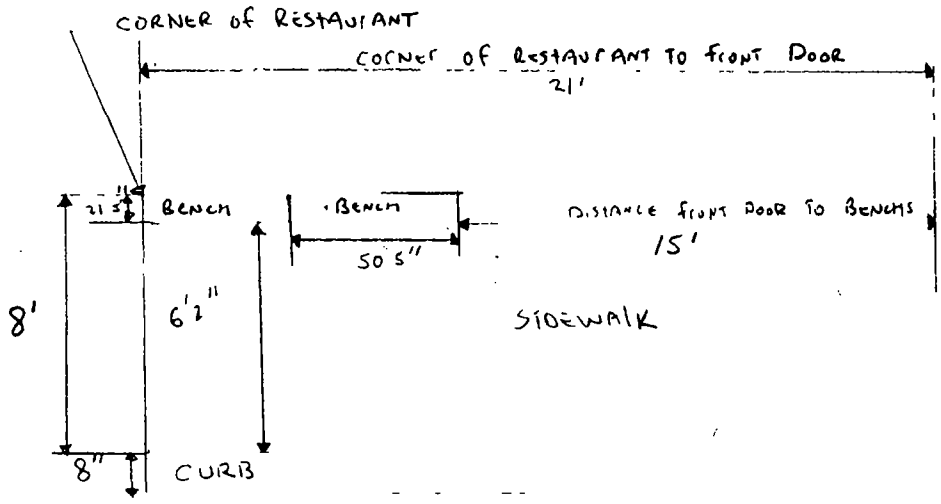 CORNER of RESTAURANT
CORNER OF RESTAURANT TO FRONT DOOR
21'
21 5"
BENCH
BENCH
DISTANCE FRONT DOOR TO BENCHS
15'
50 5"
8'
6'2"
SIDEWALK
8"
CURB